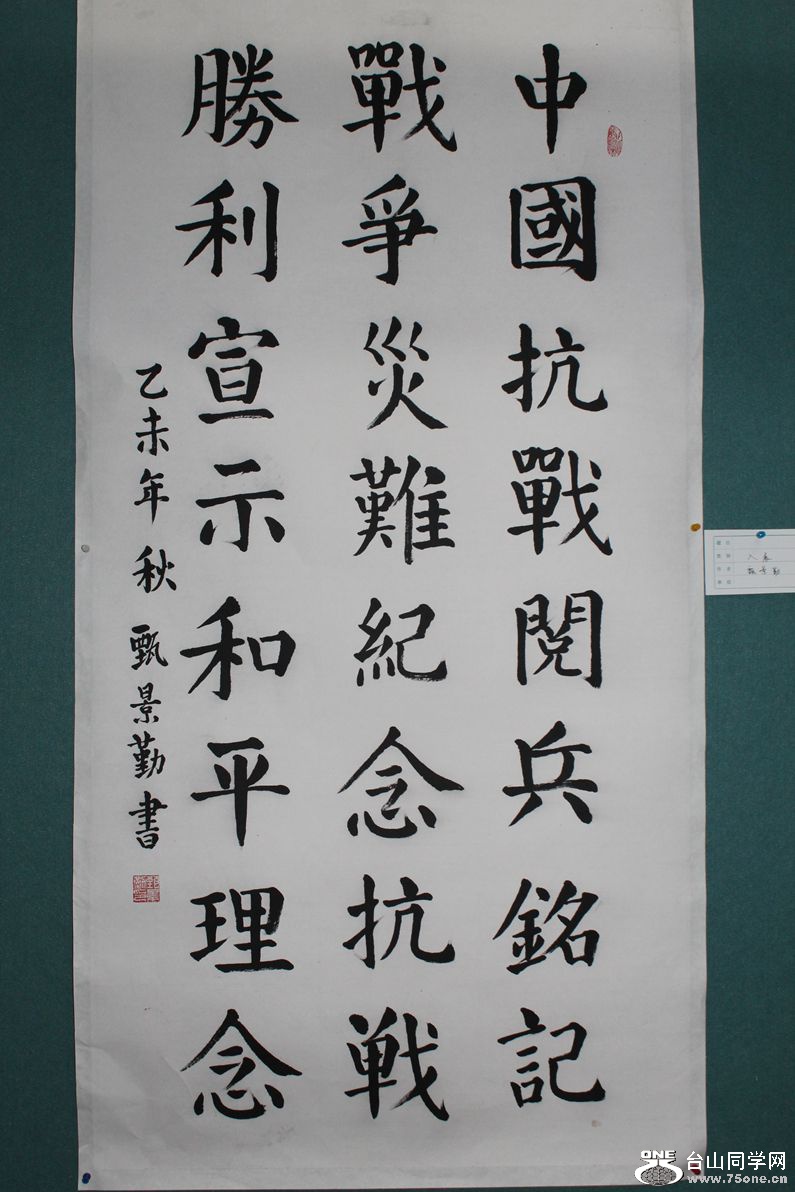 中國抗戰閱兵銘記
戰爭災難紀念抗戦
勝利宣示和平理念
乙未年秋 甄景勤書
入展
甄景勤
ONE 台山同学网
www.75one.cn